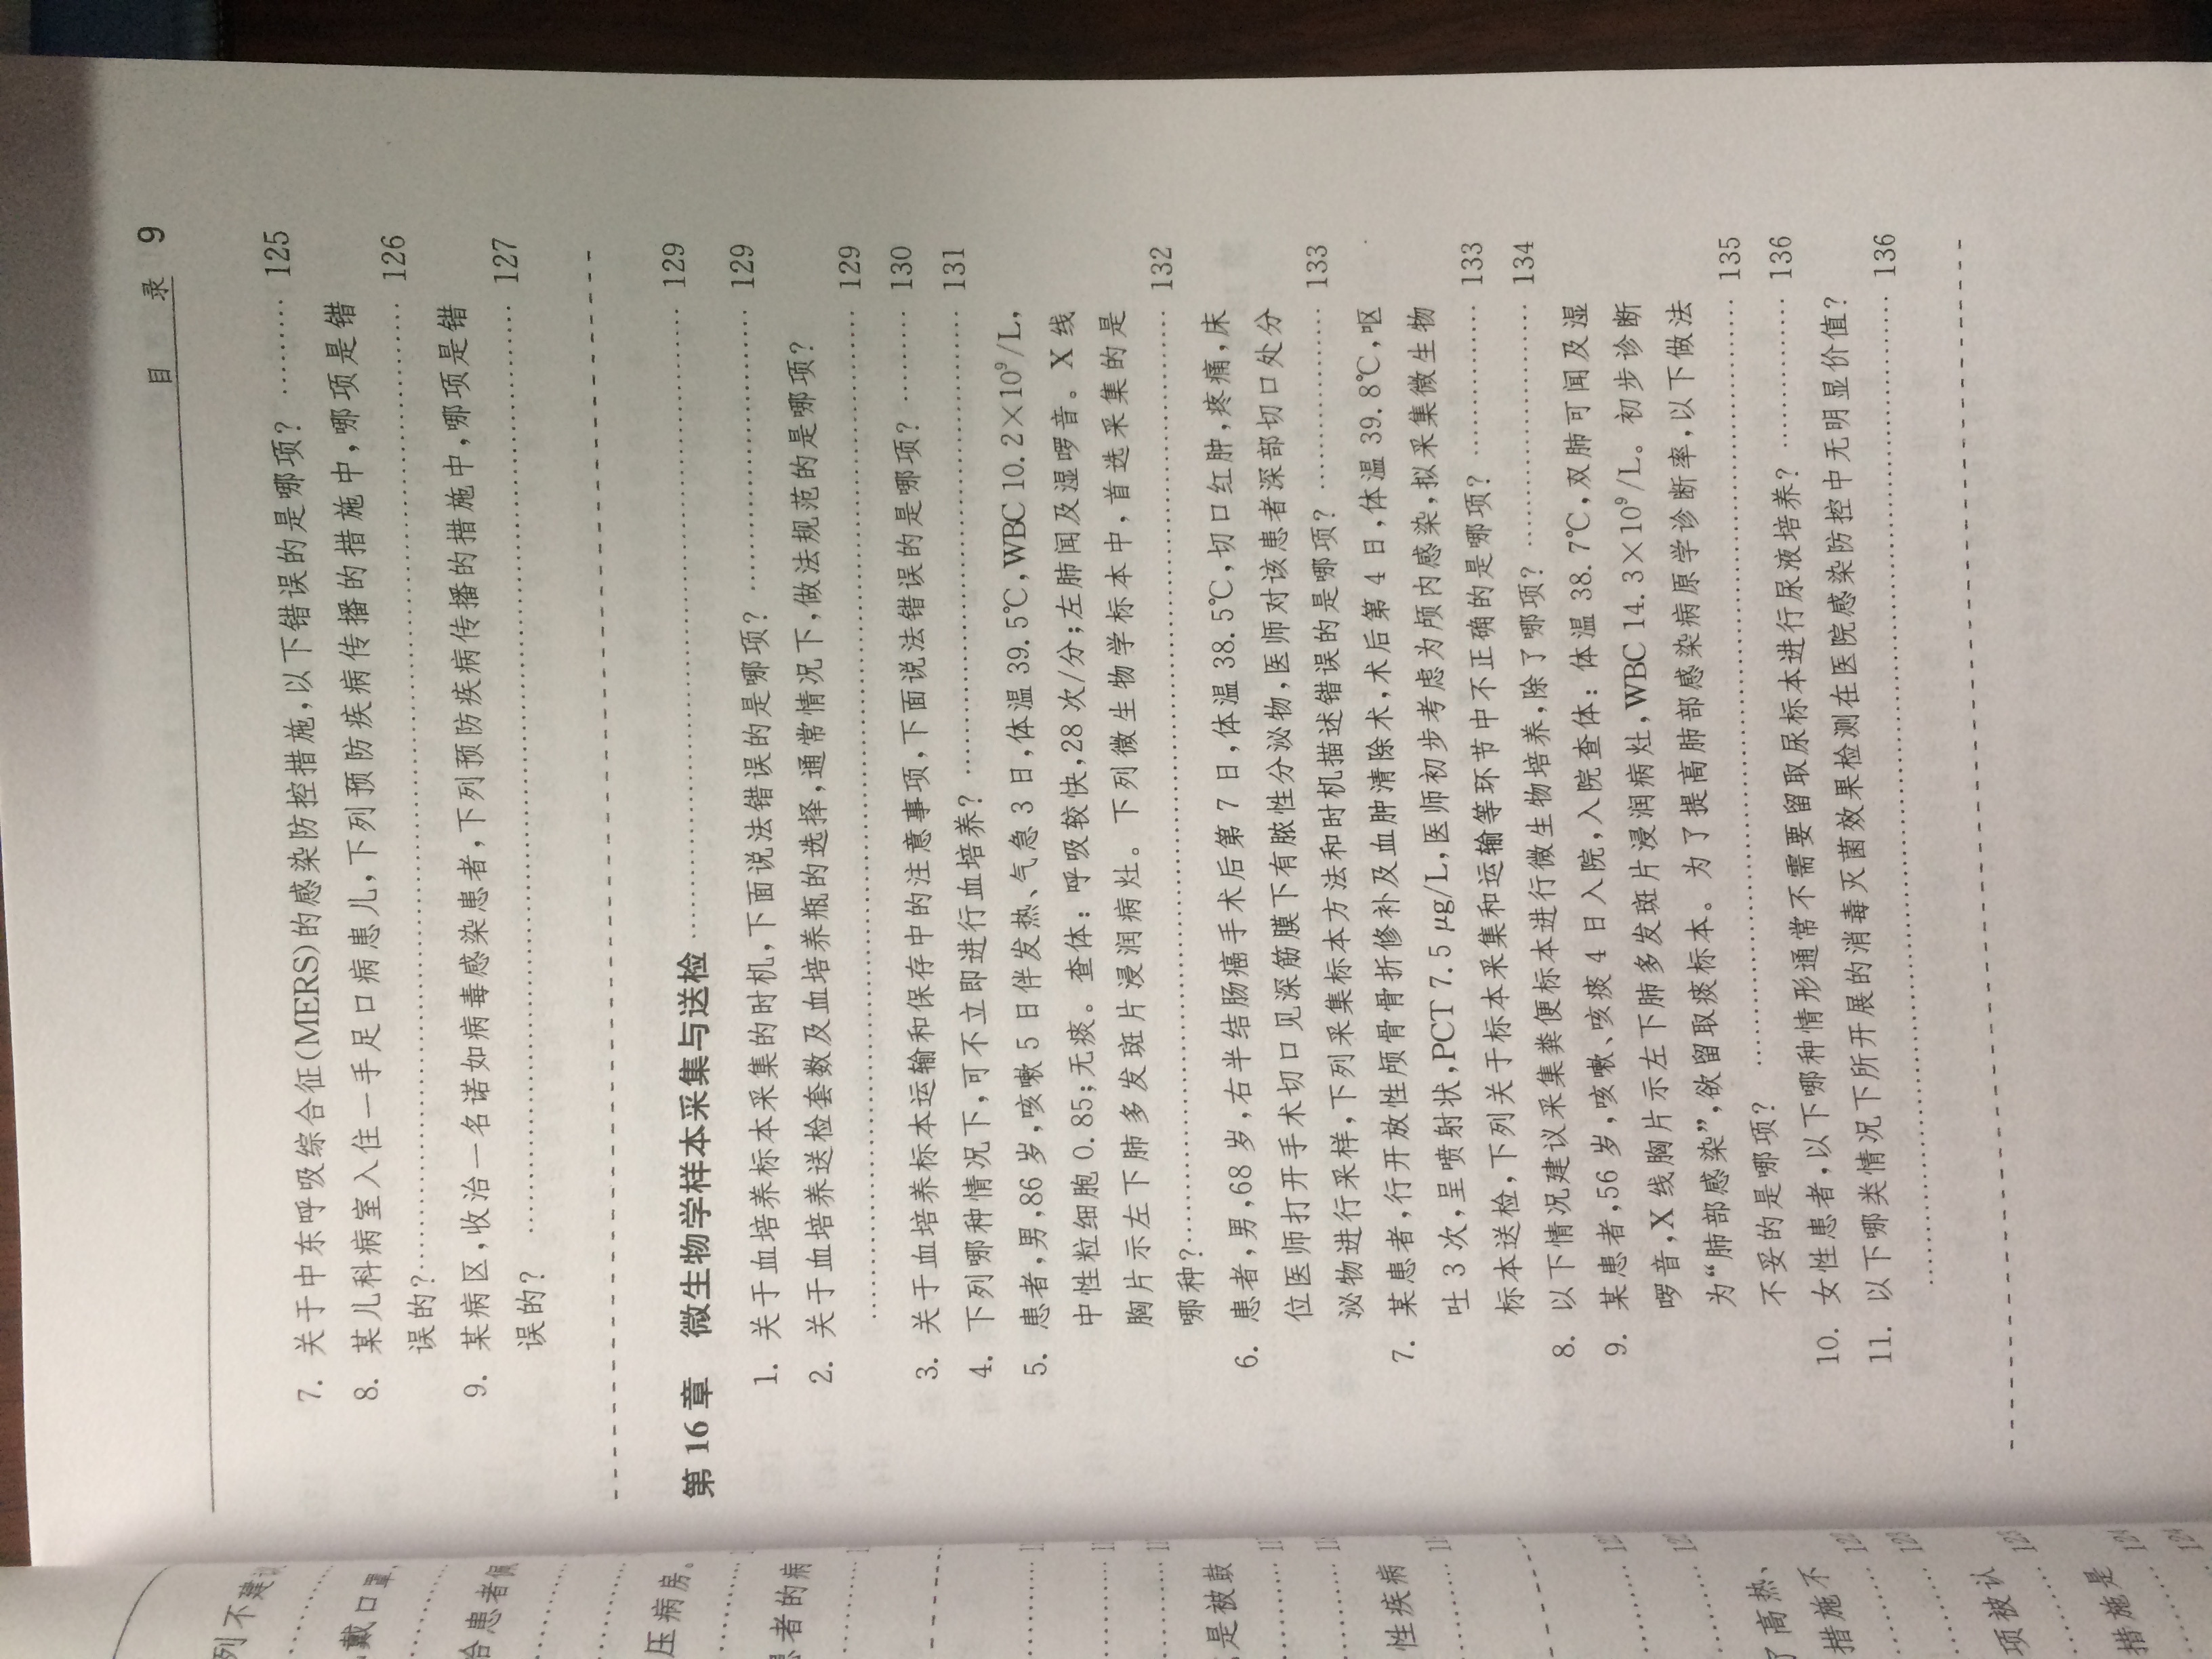 目 录 9
7. 关于中东呼吸综合征(MERS)的感染防控措施,以下错误的是哪项? ········· 125
8. 某儿科病室入住一手足口病患儿,下列预防疾病传播的措施中,哪项是错
误的?········· 126
9. 某病区,收治一名诺如病毒感染患者,下列预防疾病传播的措施中,哪项是错
误的? ········· 127
第 16 章 微生物学样本采集与送检 ········· 129
1. 关于血培养标本采集的时机,下面说法错误的是哪项? ········· 129
2. 关于血培养送检套数及血培养瓶的选择,通常情况下,做法规范的是哪项?
········· 129
3. 关于血培养标本运输和保存中的注意事项,下面说法错误的是哪项? ········· 130
4. 下列哪种情况下,可不立即进行血培养? ········· 131
5. 患者,男,86 岁,咳嗽 5 日伴发热、气急 3 日,体温 39.5℃,WBC 10.2×10⁹/L,
中性粒细胞 0.85;无痰。查体：呼吸较快,28 次/分;左肺闻及湿啰音。X 线
胸片示左下肺多发斑片浸润病灶。下列微生物学标本中,首选采集的是
哪种?········· 132
6. 患者,男,68 岁,右半结肠癌手术后第 7 日,体温 38.5℃,切口红肿,疼痛,床
位医师打开手术切口见深筋膜下有脓性分泌物,医师对该患者深部切口处分
泌物进行采样,下列采集标本方法和时机描述错误的是哪项? ········· 133
7. 某患者,行开放性颅骨骨折修补及血肿清除术,术后第 4 日,体温 39.8℃,呕
吐 3 次,呈喷射状,PCT 7.5 μg/L,医师初步考虑为颅内感染,拟采集微生物
标本送检,下列关于标本采集和运输等环节中不正确的是哪项? ········· 133
8. 以下情况建议采集粪便标本进行微生物培养,除了哪项? ········· 134
9. 某患者,56 岁,咳嗽、咳痰 4 日入院,入院查体：体温 38.7℃,双肺可闻及湿
啰音,X 线胸片示左下肺多发斑片浸润病灶,WBC 14.3×10⁹/L。初步诊断
为“肺部感染”,欲留取痰标本。为了提高肺部感染病原学诊断率,以下做法
不妥的是哪项? ········· 135
10. 女性患者,以下哪种情形通常不需要留取尿标本进行尿液培养? ········· 136
11. 以下哪类情况下所开展的消毒灭菌效果检测在医院感染防控中无明显价值?
········· 136
列不建
戴口罩
给患者佩
压病房。
患者的病
是被鼓
性疾病
高热、
措施不
项被认
措施是